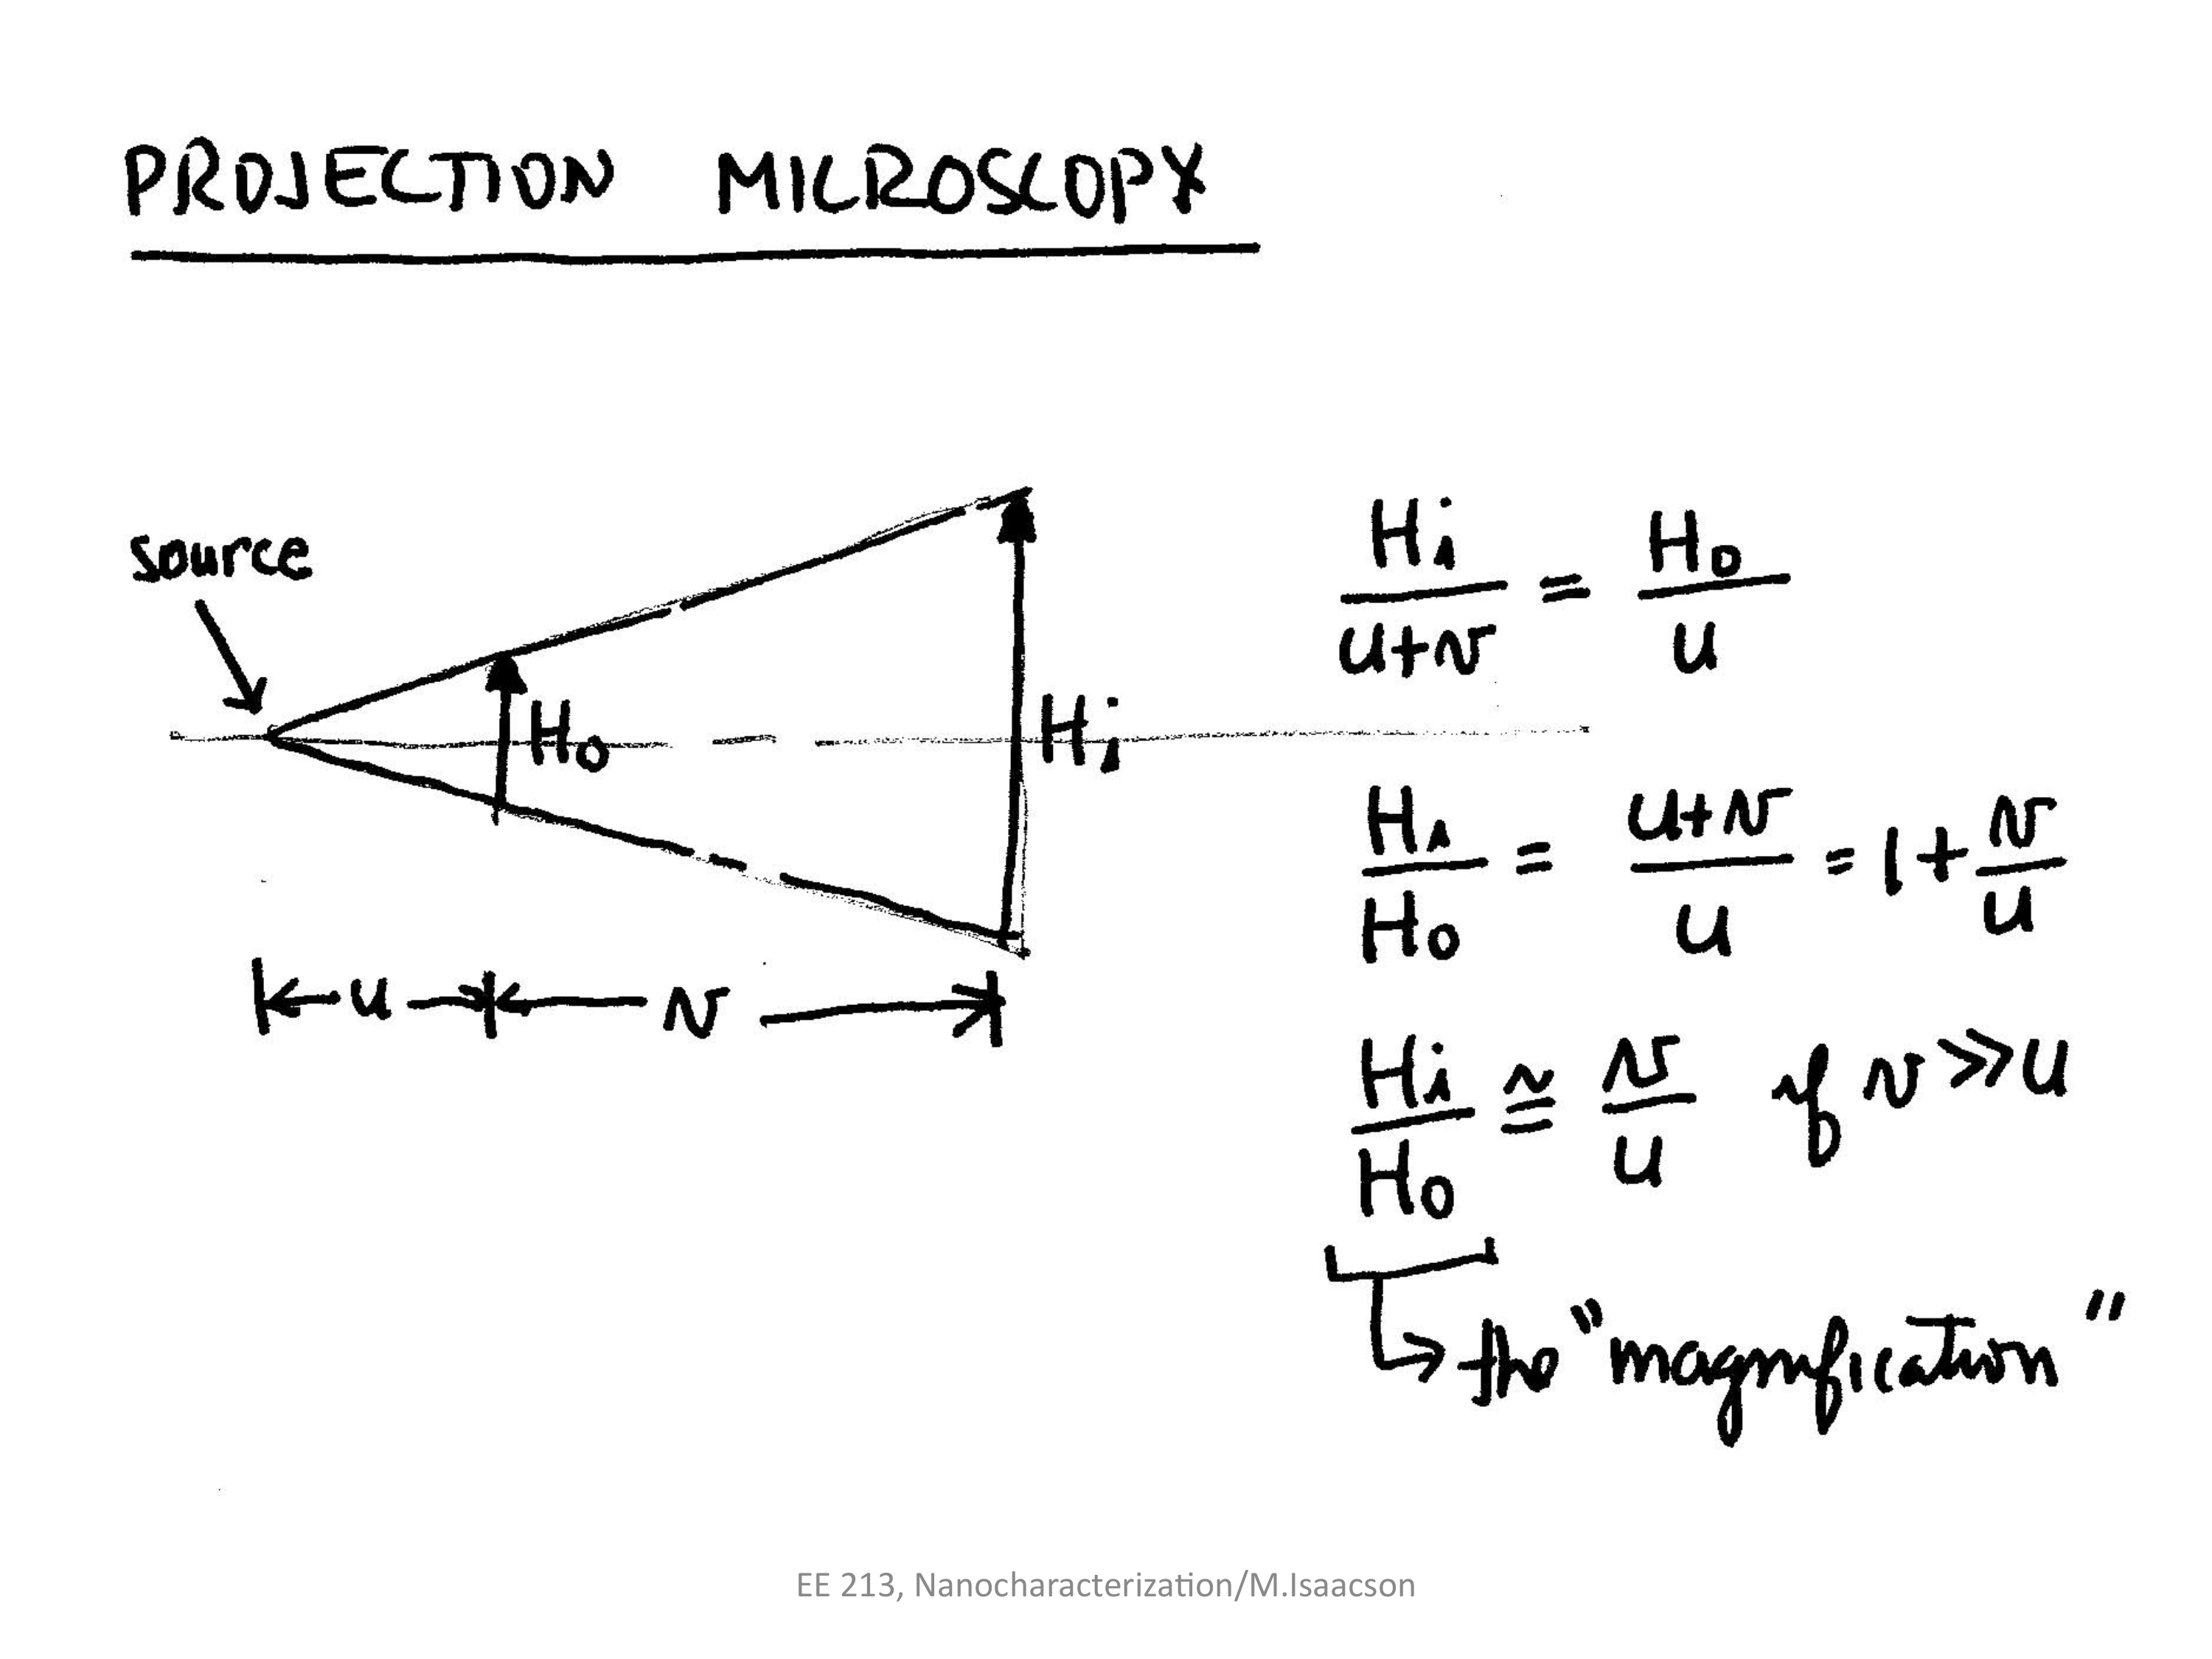 PROJECTION MICROSCOPY
source
Ho
Hi
u
v
Hi/u+v = Ho/u
Hi/Ho = u+v/u = 1+v/u
Hi/Ho ≅ v/u if v>>u
the "magnification"
EE 213, Nanocharacterization/M.Isaacson